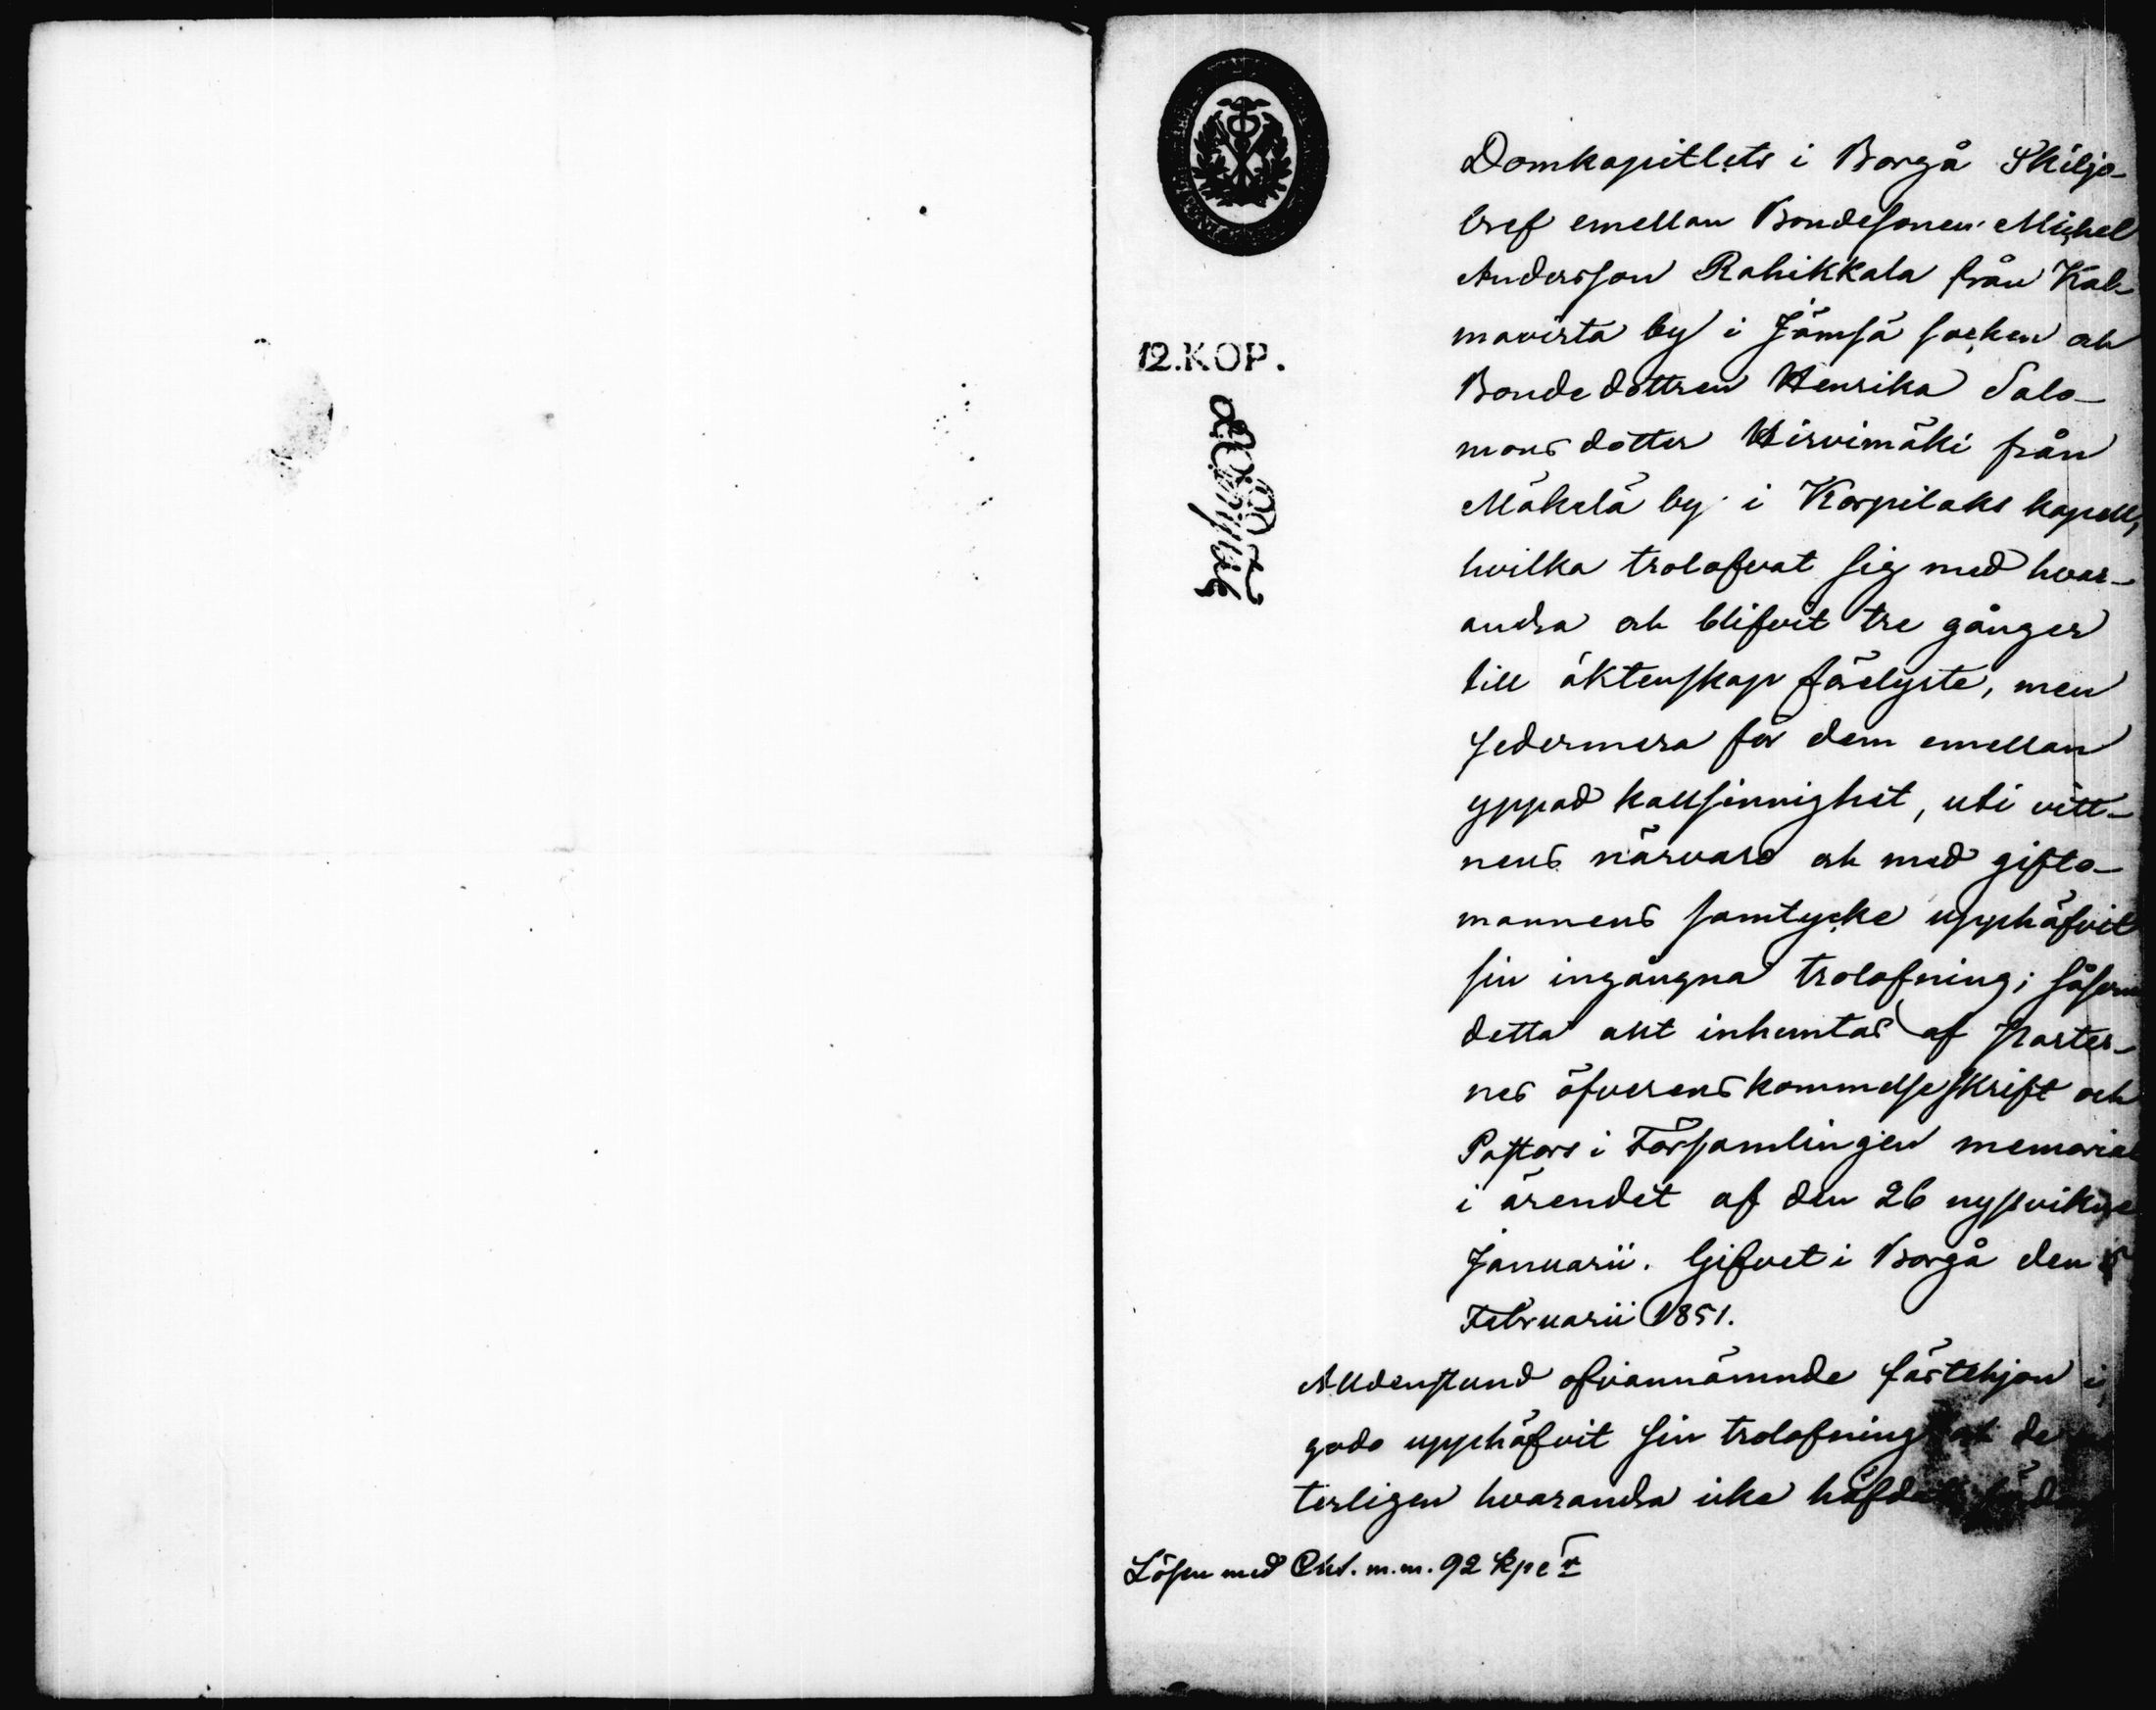 12.KOP.
Domkapitlets i Borgå Skiljo-
bref emellan Bondesonen Michel
Andersson Rahikkala från Kal-
mavirta by i Jämsä socken och
Bondedottren Henrika Salo-
mons dotter Hirvimäki från
Mäkelä by i Korpilaks kapell,
hvilka trolofvat sig med hvar-
andra och blifvit tre gånger
till äktenskap förelyste, men
sedermera för dem emellan
yppad kallsinnighet, uti vitt-
nens närvaro och med gifto-
mannens samtycke upphäfvit
sin ingångna trolofning; såsom
detta allt inhemtas af Parter-
nes öfverenskommelseskrift och
Pastors i Församlingen memorial
i ärendet af den 26 nyssvikne
Januarii. Gifvet i Borgå den
Februarii 1851.
Alldenstund ofvannämnde fästehjon i
godo upphäfvit sin trolofning och de
terligen hvarandra icke häfdat
Lösen med Cht. m.m. 92 kpr